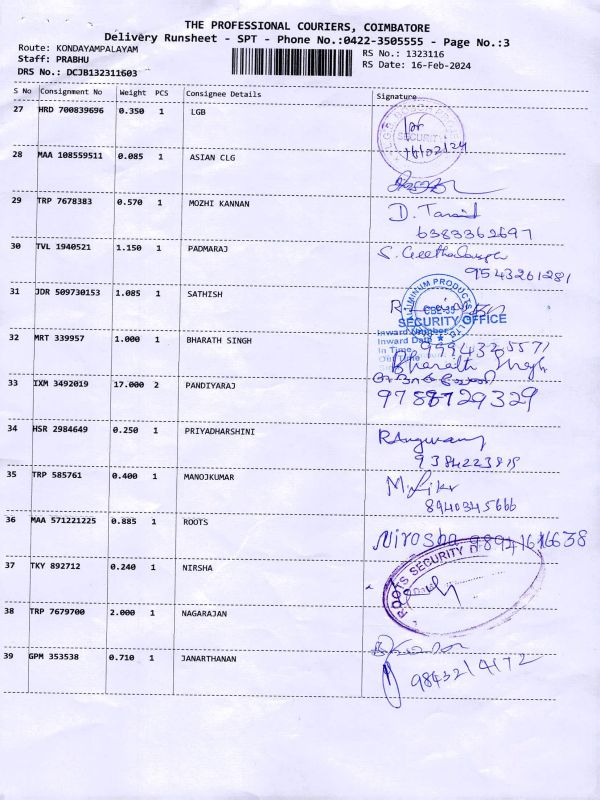 THE PROFESSIONAL COURIERS, COIMBATORE
Delivery Runsheet - SPT - Phone No.:0422-3505555 - Page No.:3
Route: KONDAYAMPALAYAM
RS No.: 1323116
Staff: PRABHU
RS Date: 16-Feb-2024
DRS No.: DCJB132311603
S No Consignment No Weight PCS Consignee Details Signature
27 HRD 700839696 0.350 1 LGB
SECURITY
16/02/24
28 MAA 108559511 0.085 1 ASIAN CLG
29 TRP 7678383 0.570 1 MOZHI KANNAN
6383362697
30 TVL 1940521 1.150 1 PADMARAJ
9543261281
31 JDR 509730153 1.085 1 SATHISH
CBE-35
SECURITY OFFICE
Inward Number
Inward Date
In Time
32 MRT 339957 1.000 1 BHARATH SINGH
Bharath Singh
33 IXM 3492019 17.000 2 PANDIYARAJ
34 HSR 2984649 0.250 1 PRIYADHARSHINI
35 TRP 585761 0.400 1 MANOJKUMAR
8940345666
36 MAA 571221225 0.885 1 ROOTS
Nirosha
ROOTS SECURITY
37 TKY 892712 0.240 1 NIRSHA
38 TRP 7679700 2.000 1 NAGARAJAN
39 GPM 353538 0.710 1 JANARTHANAN
9843214172